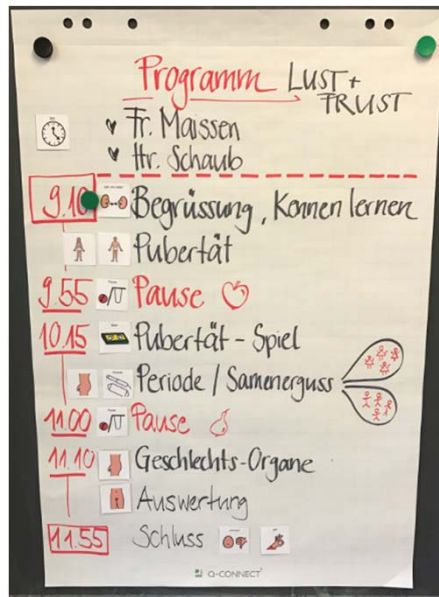 Programm LUST +
FRUST
Fr. Maissen
Hr. Schaub
9.10 Begrüssung, Kennen lernen
Pubertät
9.55 Pause
10.15 Pubertät - Spiel
Periode / Samenerguss
11.00 Pause
11.10 Geschlechts-Organe
Auswertung
11.55 Schluss
Q-CONNECT